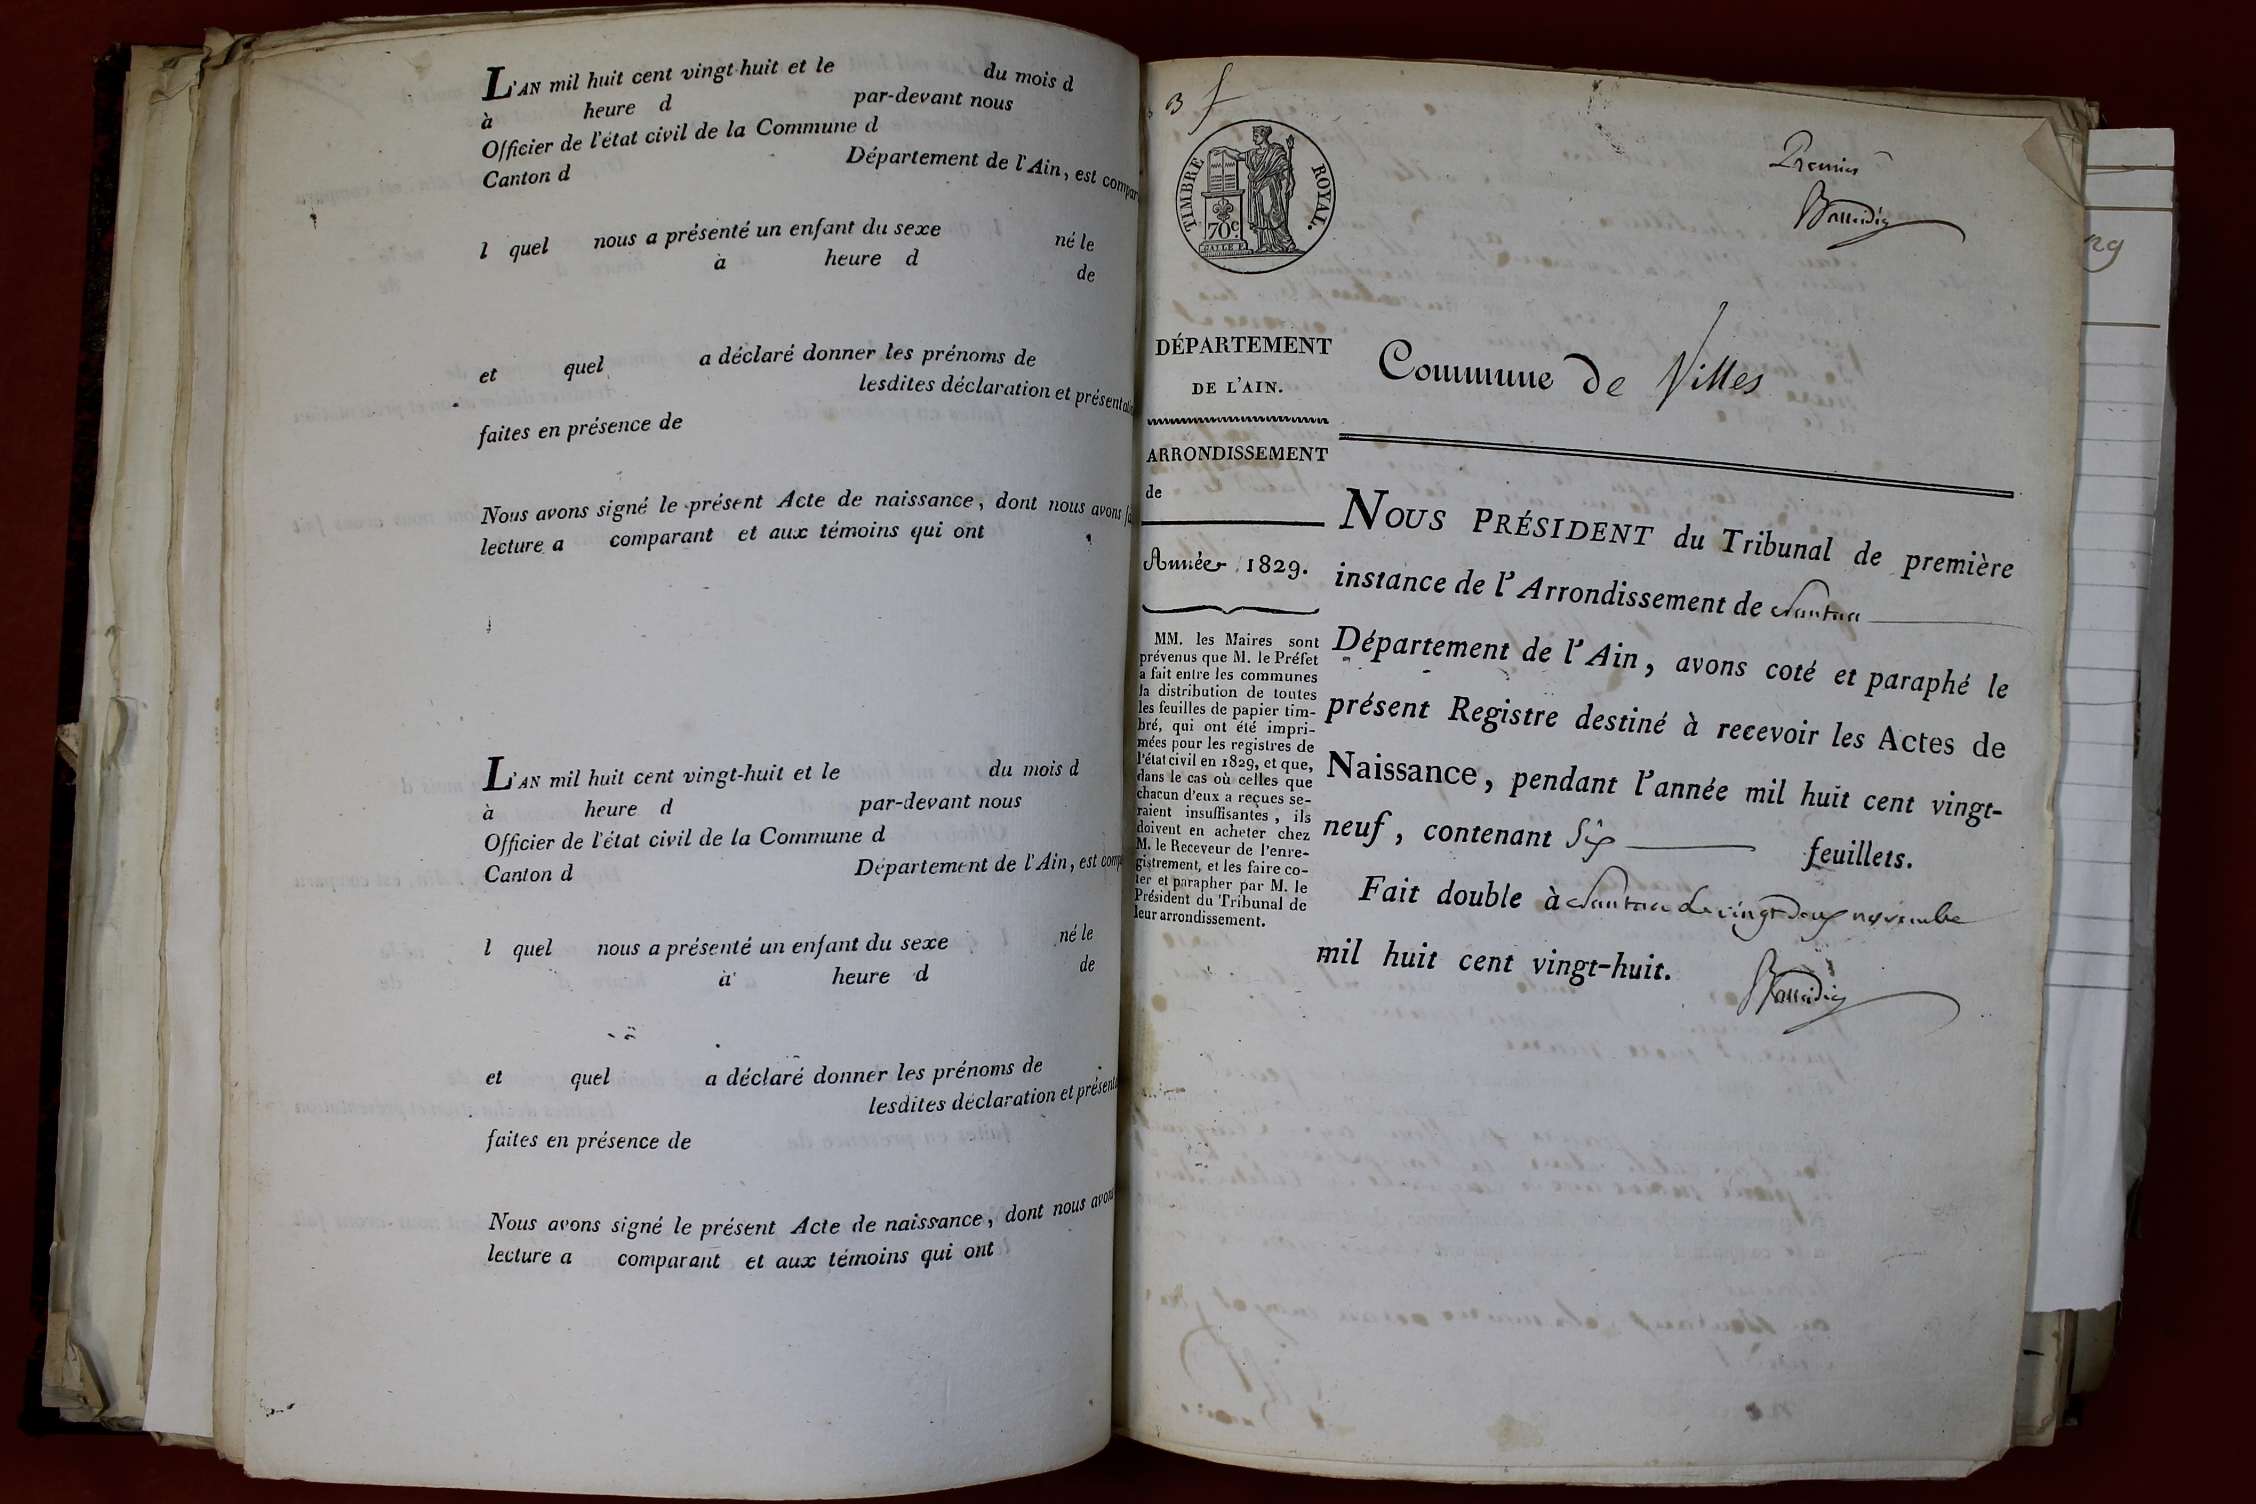 L'AN mil huit cent vingt-huit et le du mois d
à heure d par-devant nous
Officier de l'état civil de la Commune d
Canton d Département de l'Ain, est compar
l quel nous a présenté un enfant du sexe né le
à heure d de
et quel a déclaré donner les prénoms de
lesdites déclaration et présentati
faites en présence de
Nous avons signé le présent Acte de naissance, dont nous avons fa
lecture a comparant et aux témoins qui ont
L'AN mil huit cent vingt-huit et le du mois d
à heure d par-devant nous
Officier de l'état civil de la Commune d
Canton d Département de l'Ain, est comp
l quel nous a présenté un enfant du sexe né le
à heure d de
et quel a déclaré donner les prénoms de
lesdites déclaration et présenta
faites en présence de
Nous avons signé le présent Acte de naissance, dont nous avons
lecture a comparant et aux témoins qui ont
Premier
TIMBRE ROYAL.
70c.
29
DÉPARTEMENT
DE L'AIN.
ARRONDISSEMENT
de
Année 1829.
MM. les Maires sont
prévenus que M. le Préfet
a fait entre les communes
la distribution de toutes
les feuilles de papier tim-
bré, qui ont été impri-
mées pour les registres de
l'état civil en 1829, et que,
dans le cas où celles que
chacun d'eux a reçues se-
raient insuffisantes, ils
doivent en acheter chez
M. le Receveur de l'enre-
gistrement, et les faire co-
ter et parapher par M. le
Président du Tribunal de
leur arrondissement.
Commune de Villes
NOUS PRÉSIDENT du Tribunal de première
instance de l'Arrondissement de Nantua
Département de l'Ain, avons coté et paraphé le
présent Registre destiné à recevoir les Actes de
Naissance, pendant l'année mil huit cent vingt-
neuf, contenant Six feuillets.
Fait double à Nantua le vingt deux novembre
mil huit cent vingt-huit.